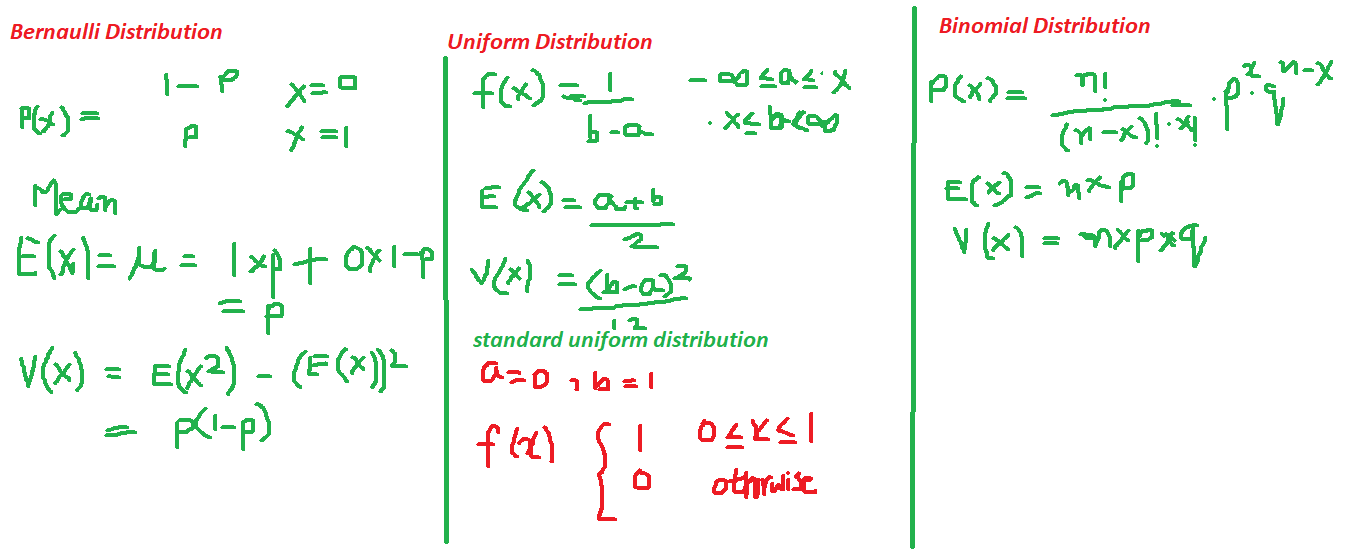 Bernaulli Distribution
P(x) =
1 - P x = 0
P x = 1
Mean
E(x) = μ = 1 x p + 0 x 1 - p
= p
V(x) = E(x²) - (E(x))²
= p(1-p)
Uniform Distribution
f(x) = 1 / (b - a) - ∞ ≤ a ≤ x
x ≤ b < ∞
E(x) = (a + b) / 2
V(x) = (b - a)² / 12
standard uniform distribution
a = 0 , b = 1
f(x) { 1 0 ≤ x ≤ 1
0 othrwise
Binomial Distribution
P(x) = n! / ((n - x)! · x!) · p^x · q^(n - x)
E(x) = n x p
V(x) = n x p x q